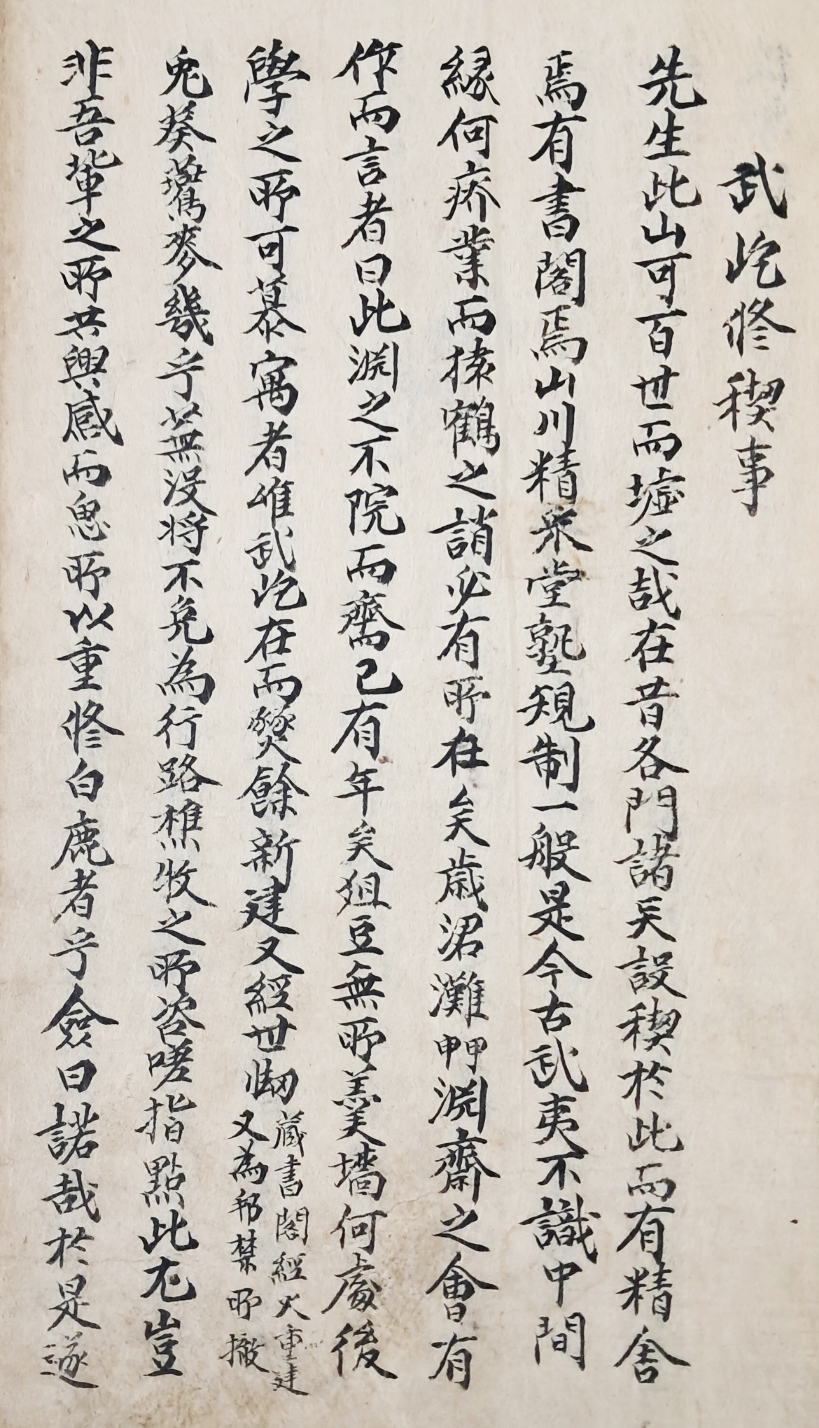 武屹修稧事
先生此山可百世而墟之哉在昔各門諸長設稧於此而有精舍
焉有書閣焉山川精采堂塾規制一般是今古武夷不識中間
緣何疥業而猿鶴之誚必有所在矣歲涒灘閈淵齋之會有
作而言者曰此淵之不院而齋已有年矣俎豆無所羹墻何處後
學之所可慕寓者唯武屹在而燹餘新建又經世刼藏書閣經火重建又爲邦禁所撤
兎葵鷰麥幾乎蕪沒將不免爲行路樵牧之所咨嗟指點此尤豈
非吾輩之所共興感而思所以重修白鹿者乎僉曰諾哉於是遂